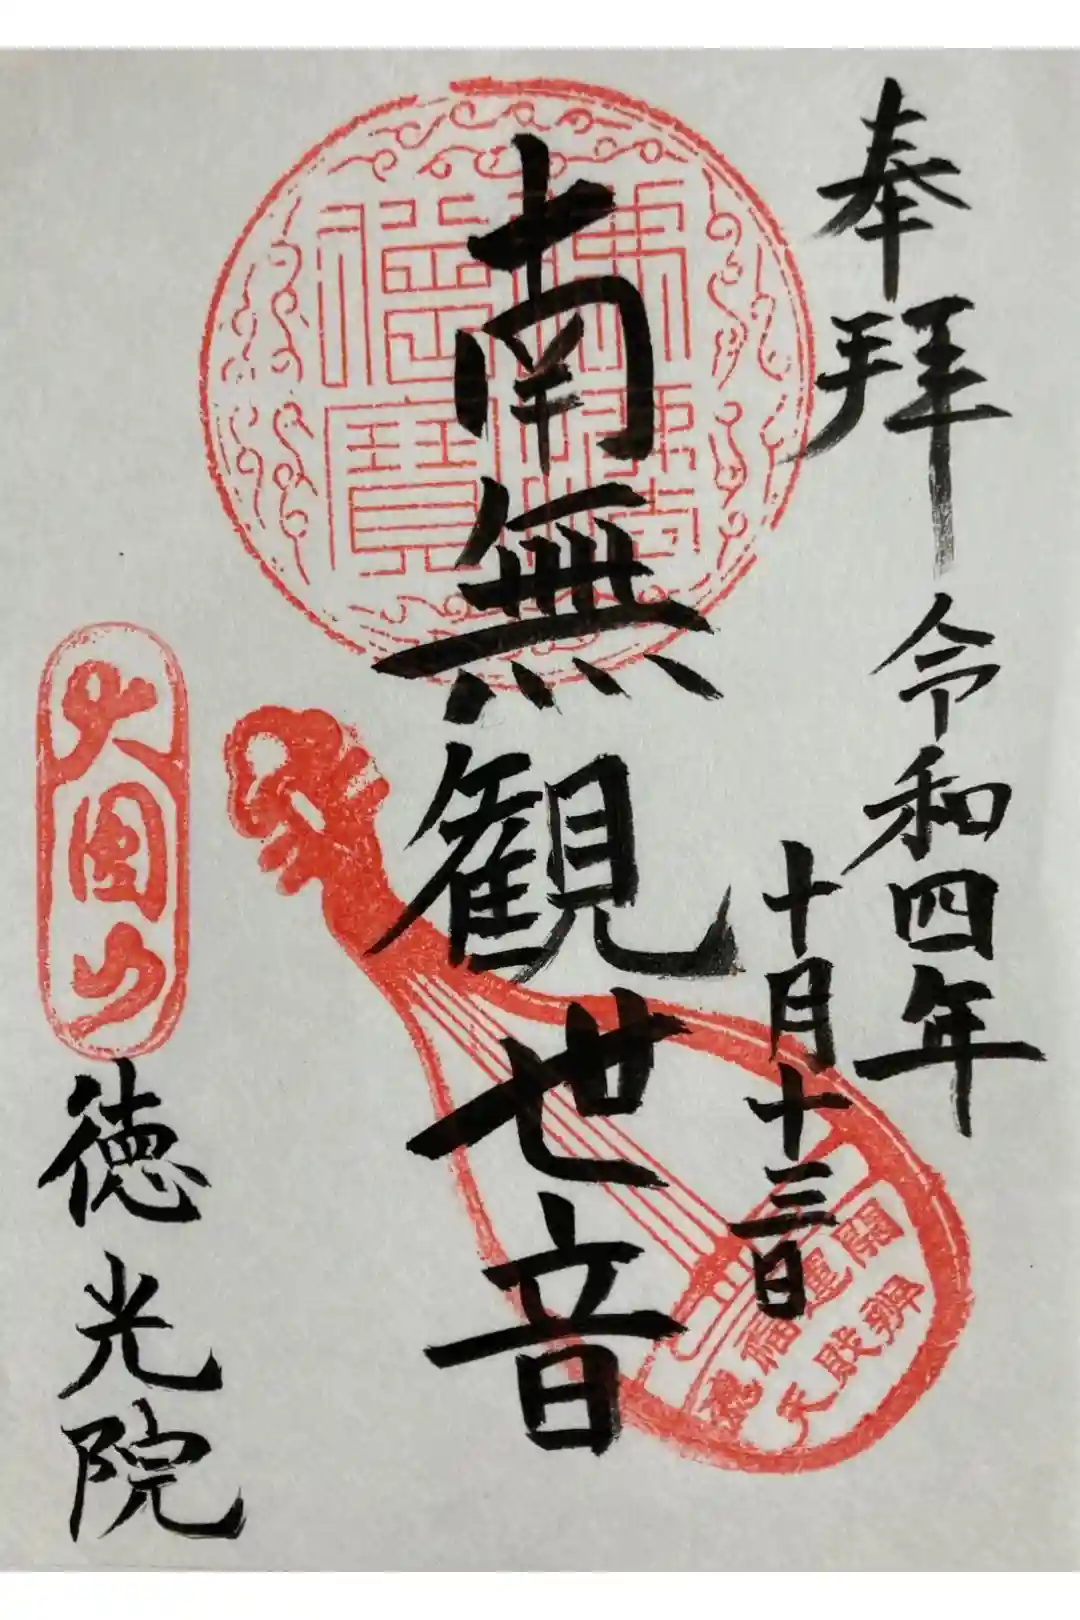 奉拝
令和四年
十月十三日
南無観世音
大圓山
徳光院
開運福徳
辨財天